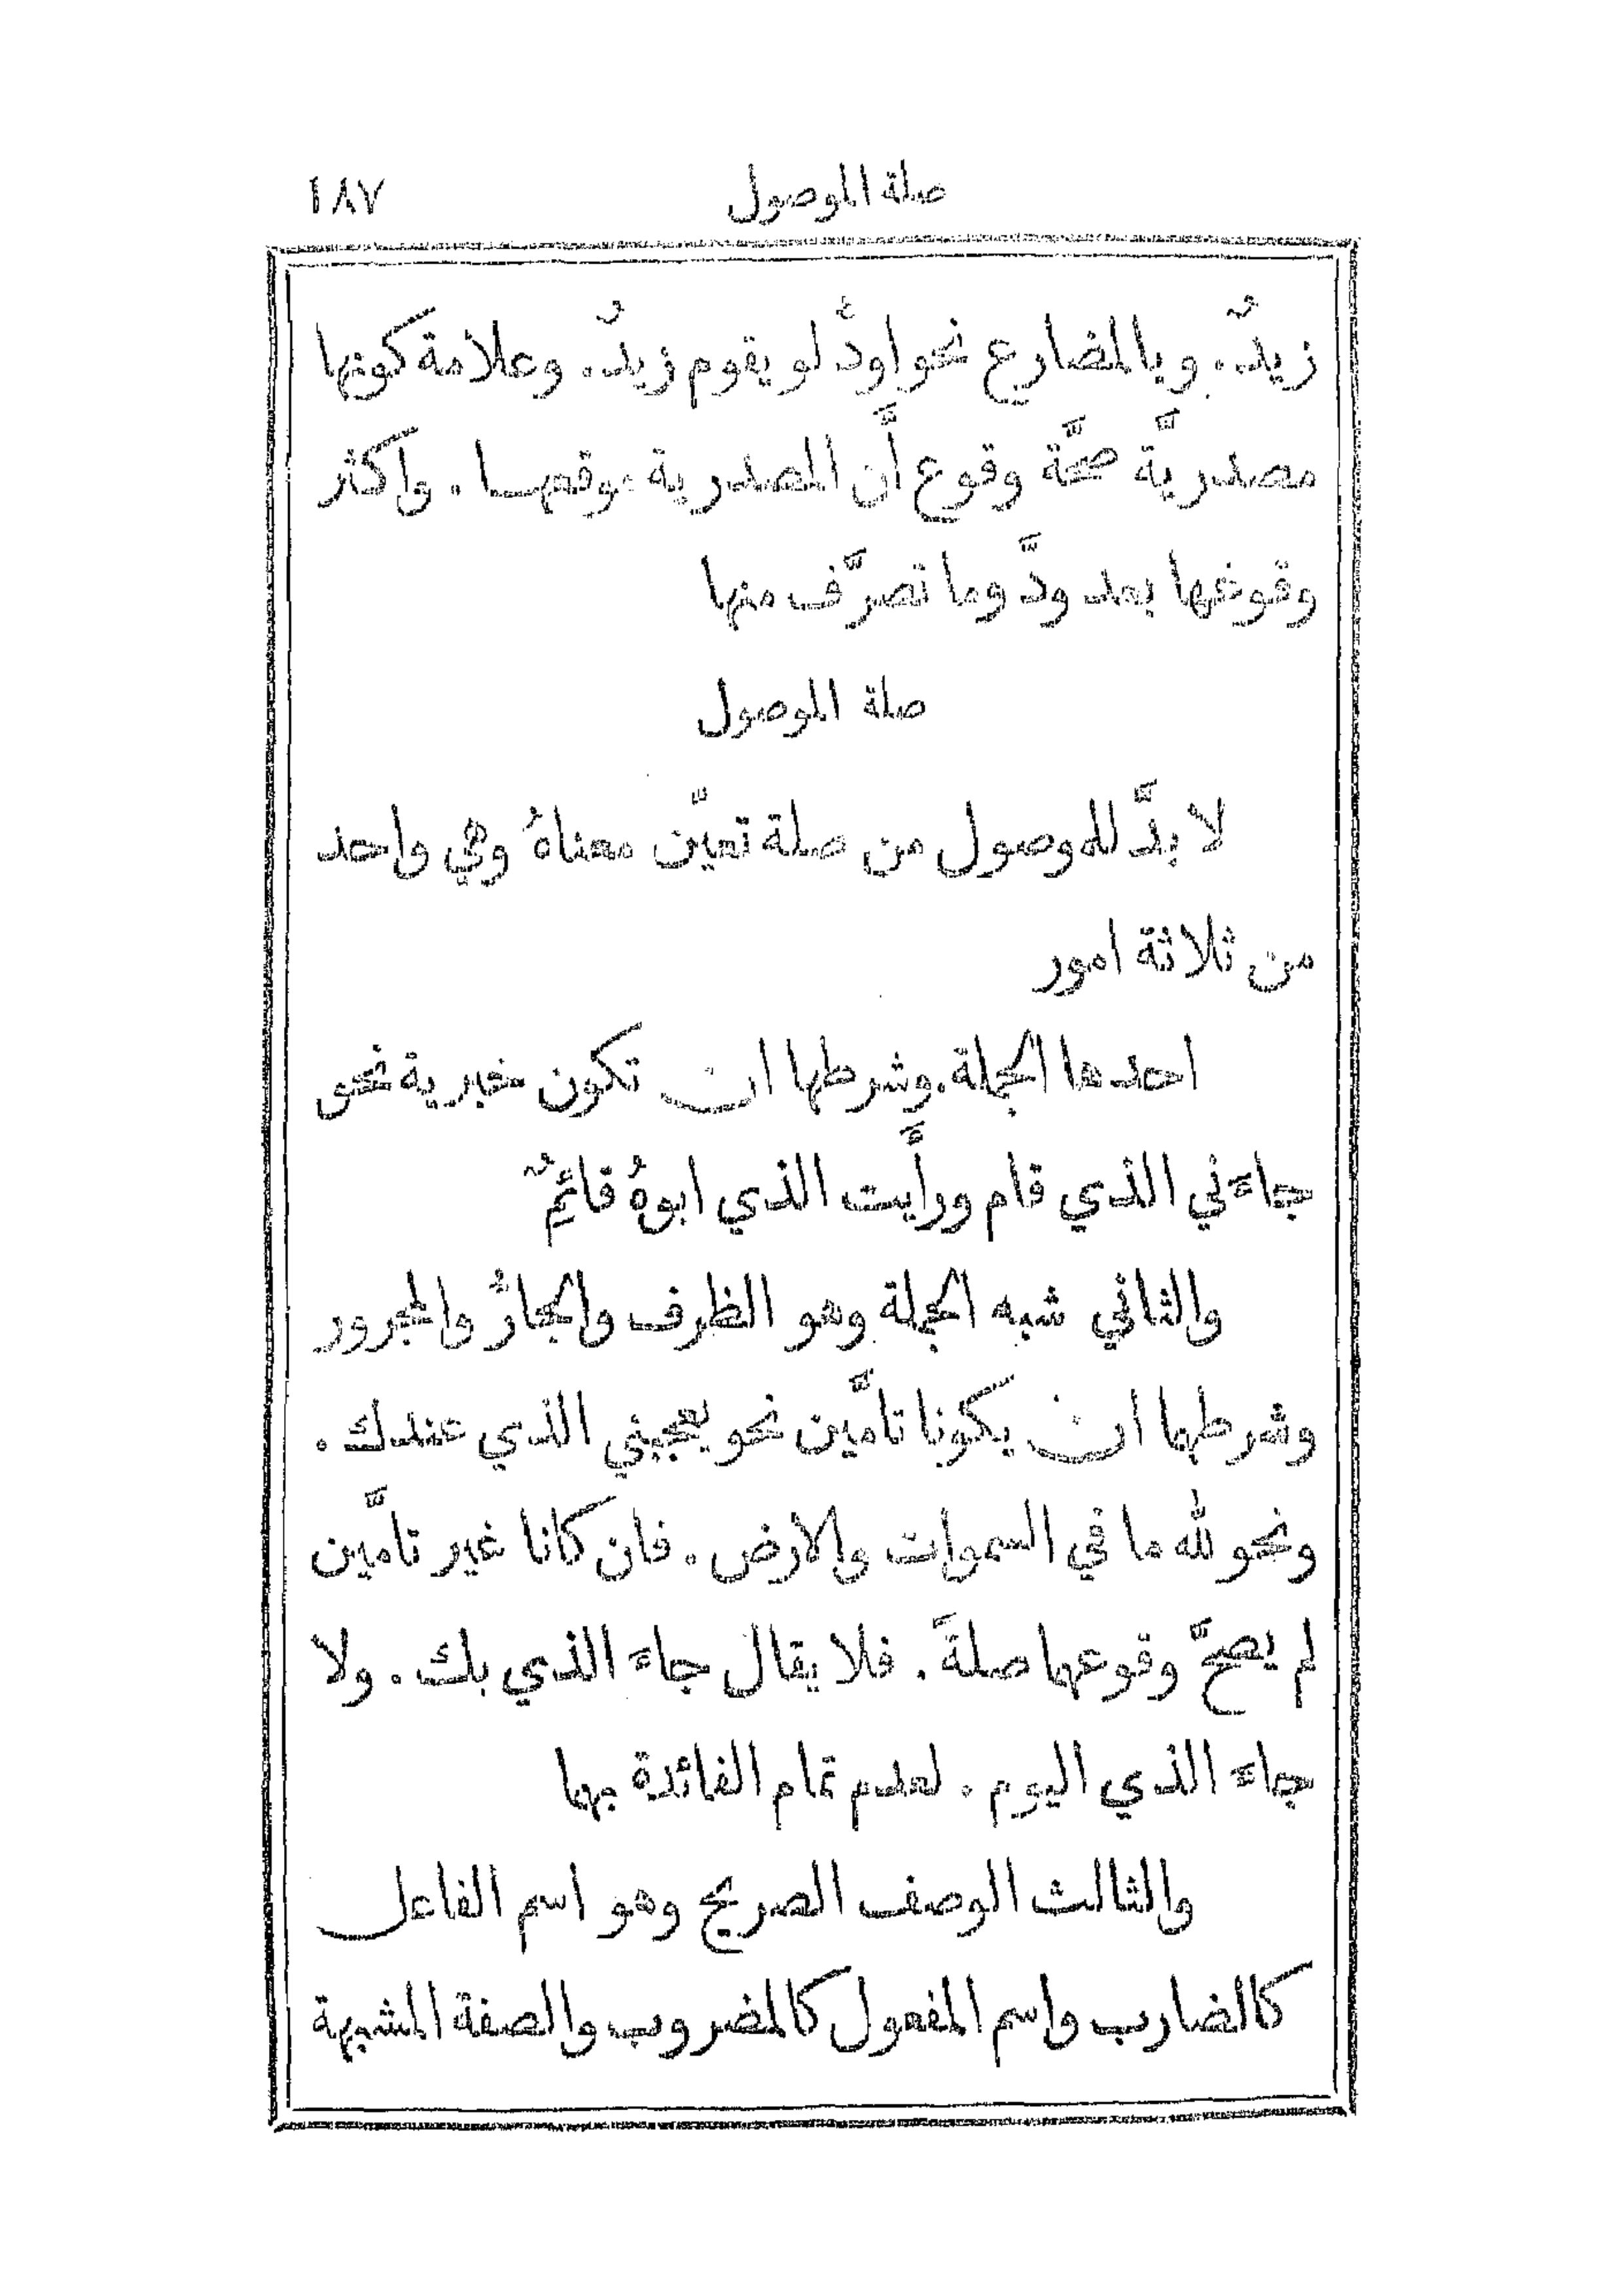 صلة الموصول ١٨٧
زيدٌ. وبالمضارع نحو اودُّ لو يقوم زيدٌ. وعلامة كونها
مصدريَّة صحَّة وقوع أَن المصدرية موقعهـا. واكثر
وقوعها بعد ودَّ وما تصرَّف منها
صلة الموصول
لا بدَّ للموصول من صلة تعيّن معناهُ وهي واحد
من ثلاثة امور
احدها الجملة. وشرطها ان تكون خبرية نحو
جاءَني الذي قام ورأَيت الذي ابوهُ قائمٌ
والثاني شبه الجملة وهو الظرف والجارُّ والمجرور
وشرطهما ان يكونا تامَّين نحو يعجبني الذي عندك.
ونحو لله ما في السموات والارض. فان كانا غير تامَّين
لم يصحَّ وقوعهما صلةً. فلا يقال جاءَ الذي بك. ولا
جاءَ الذي اليوم. لعدم تمام الفائدة بهما
والثالث الوصف الصريح وهو اسم الفاعل
كالضارب واسم المفعول كالمضروب والصفة المشبهة